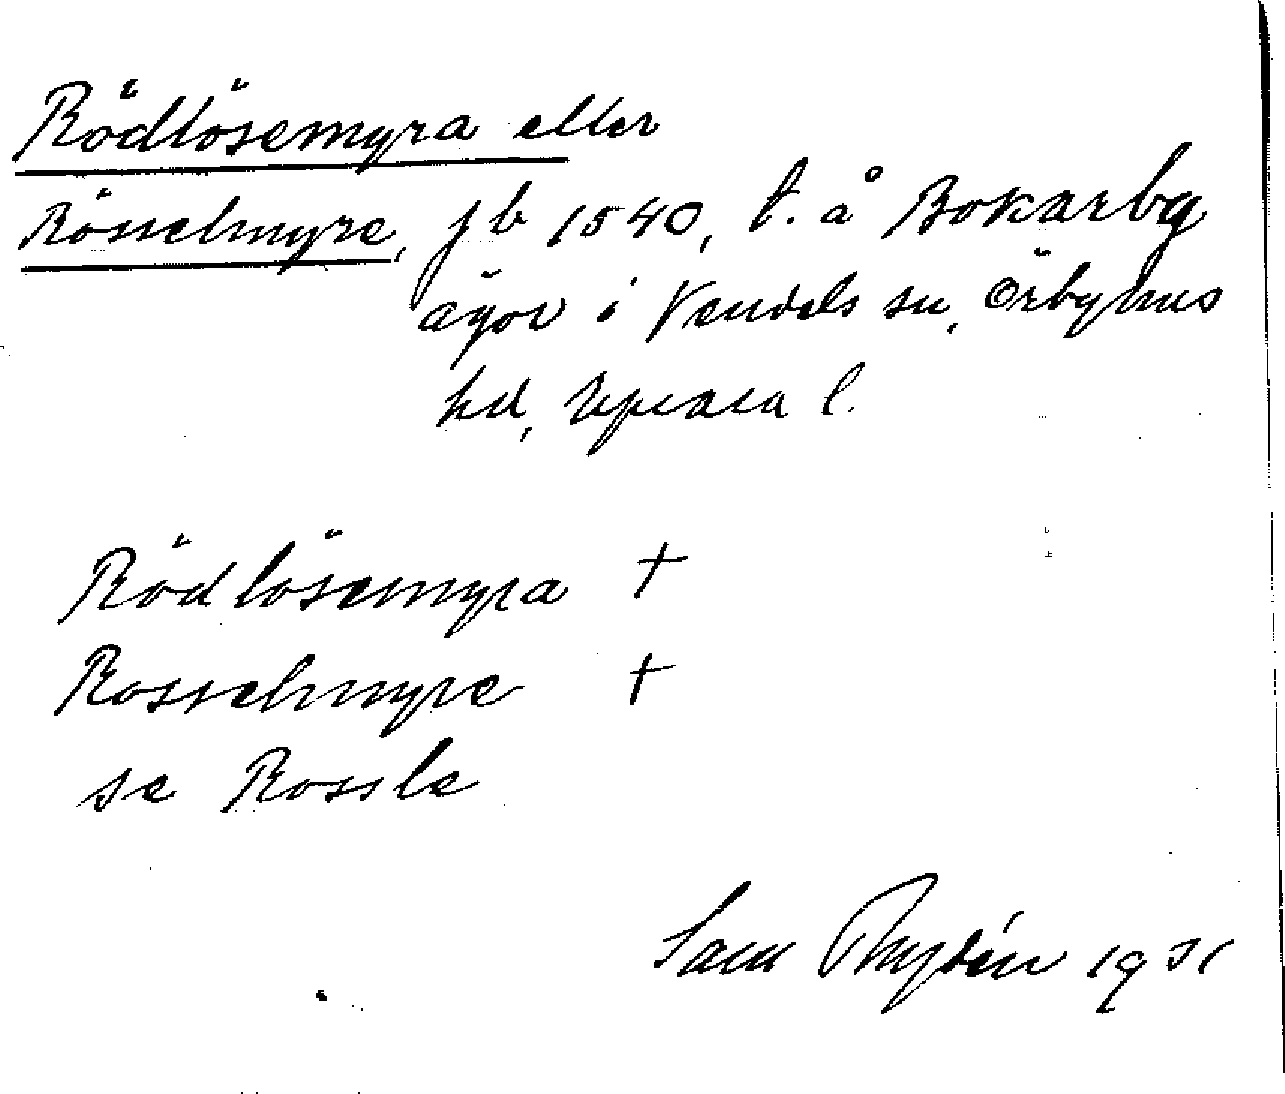 Rödlösemyra eller
Rösselmyre, jb 1540, t. å Bokarby
ägor i Vendels sn, Örbyhus
hd, Upsala l.
Rödlösemyra +
Rosselmyre +
se Rossle
Sam Rydén 1931